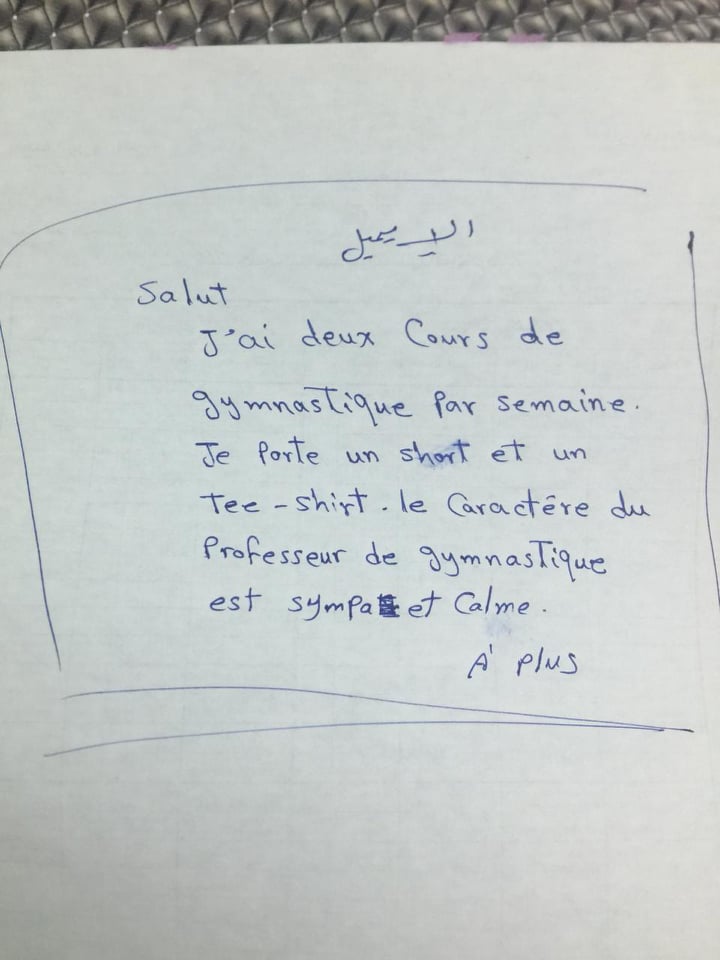 الإيميل
Salut
J'ai deux Cours de
gymnastique Par semaine.
Je Porte un short et un
Tee-shirt. le Caractére du
Professeur de gymnastique
est sympa et Calme.
À Plus